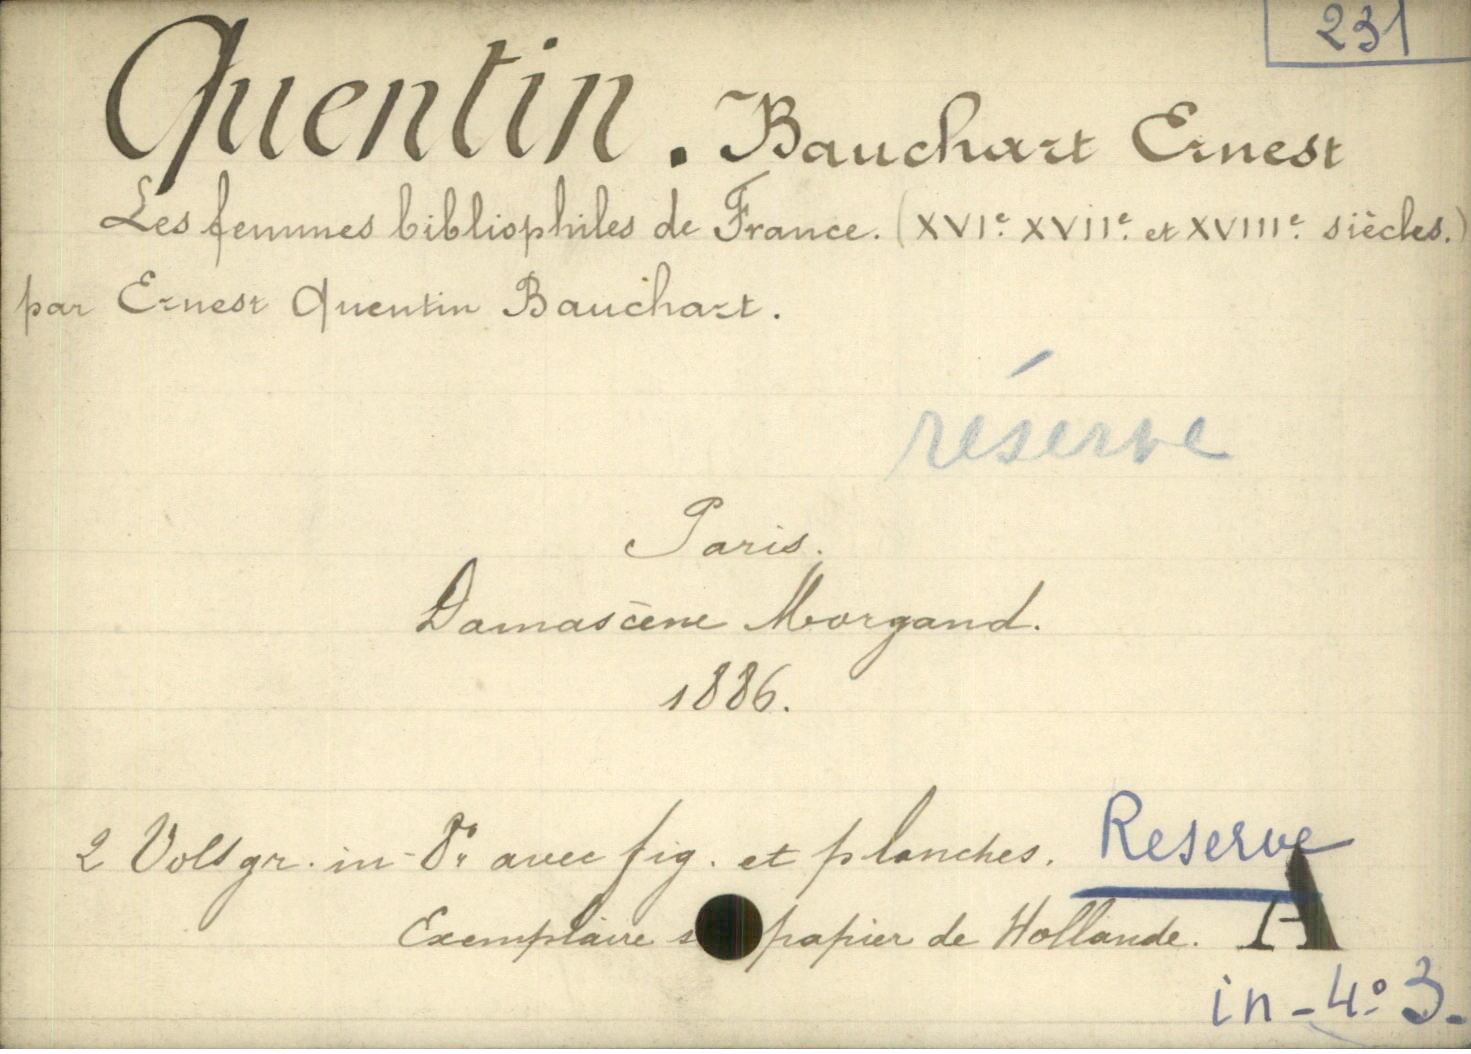 231
Quentin. Bauchart Ernest
Les femmes bibliophiles de France. (XVIe. XVIIe. et XVIIIe. siècles.)
par Ernest Quentin Bauchart.
réserve
Paris.
Damascène Morgand.
1886.
2 Vols gr. in-8º. avec fig. et planches. Reserve
Exemplaire s papier de Hollande. A
in-4º 3.